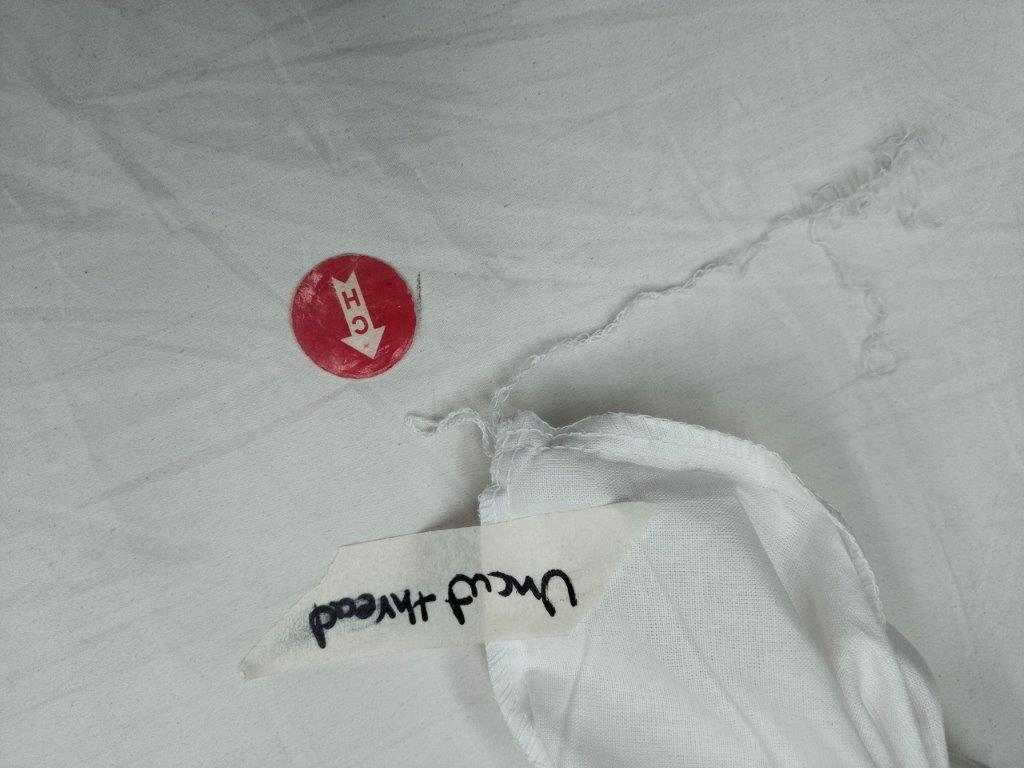 HC
Uncut thread